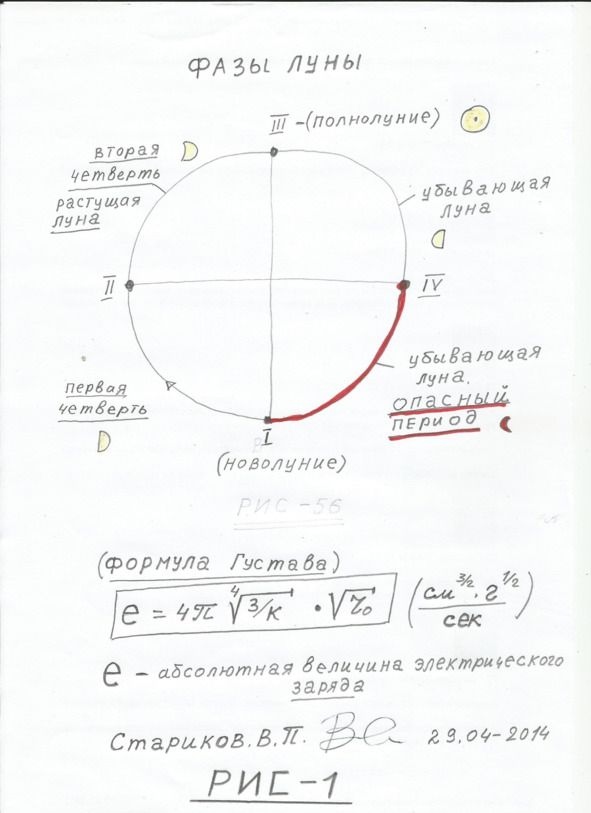 ФАЗЫ ЛУНЫ
III -(ПОЛНОЛУНИЕ)
ВТОРАЯ
ЧЕТВЕРТЬ
РАСТУЩАЯ
ЛУНА
УБЫВАЮЩАЯ
ЛУНА
II
IV
УБЫВАЮЩАЯ
ЛУНА.
ОПАСНЫЙ
ПЕРИОД
ПЕРВАЯ
ЧЕТВЕРТЬ
I
(НОВОЛУНИЕ)
РИС-56
(ФОРМУЛА ГУСТАВА)
e = 4π ∜3/K · √τ₀ (см^3/2 · г^1/2 / сек)
e - абсолютная величина электрического
заряда
Стариков. В.П. 29.04-2014
РИС-1